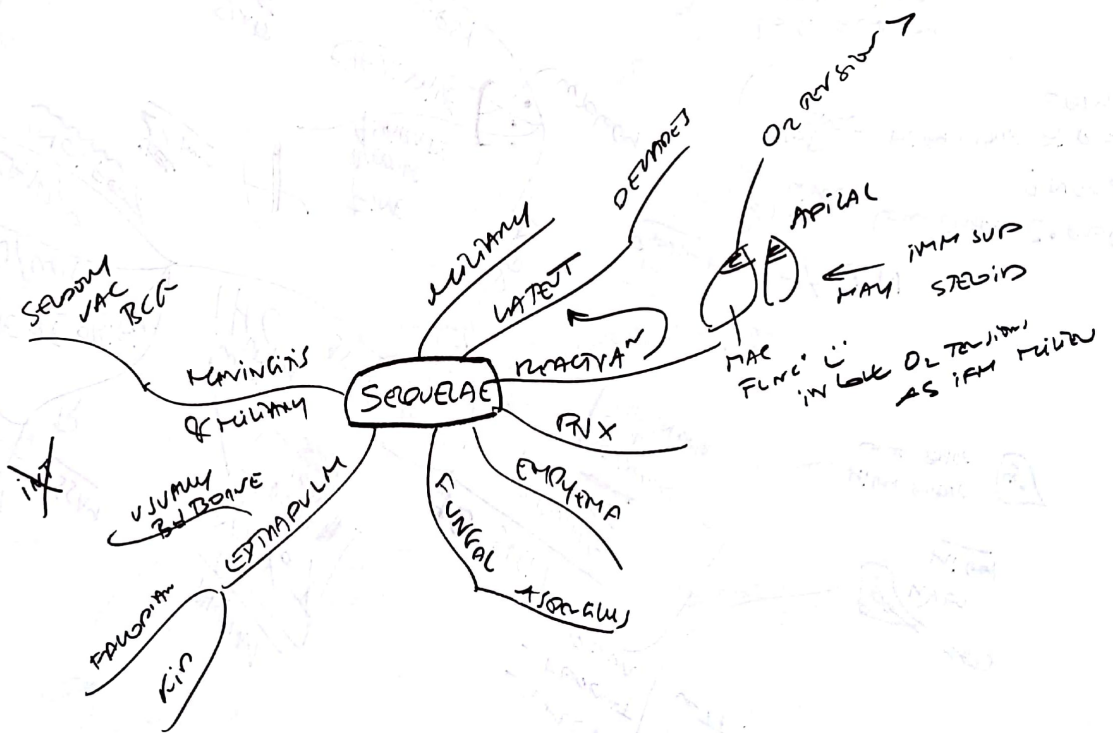 SEQUELAE
MILIARY
LATENT
DECADES
REACTIVAN
O2 TENSION ↑
APICAL
IMM SUP
MAY STEROID
MAC
FUNC:
IN LOW O2 TENSIONS
AS IFN
PNX
EMPYEMA
FUNGAL
ASPERGILLUS
EXTRAPULM
USUALLY
BD BORNE
FALLOPIAN
KID
MENINGITIS
& MILIARY
SELDOM
VAC
BCG
INT